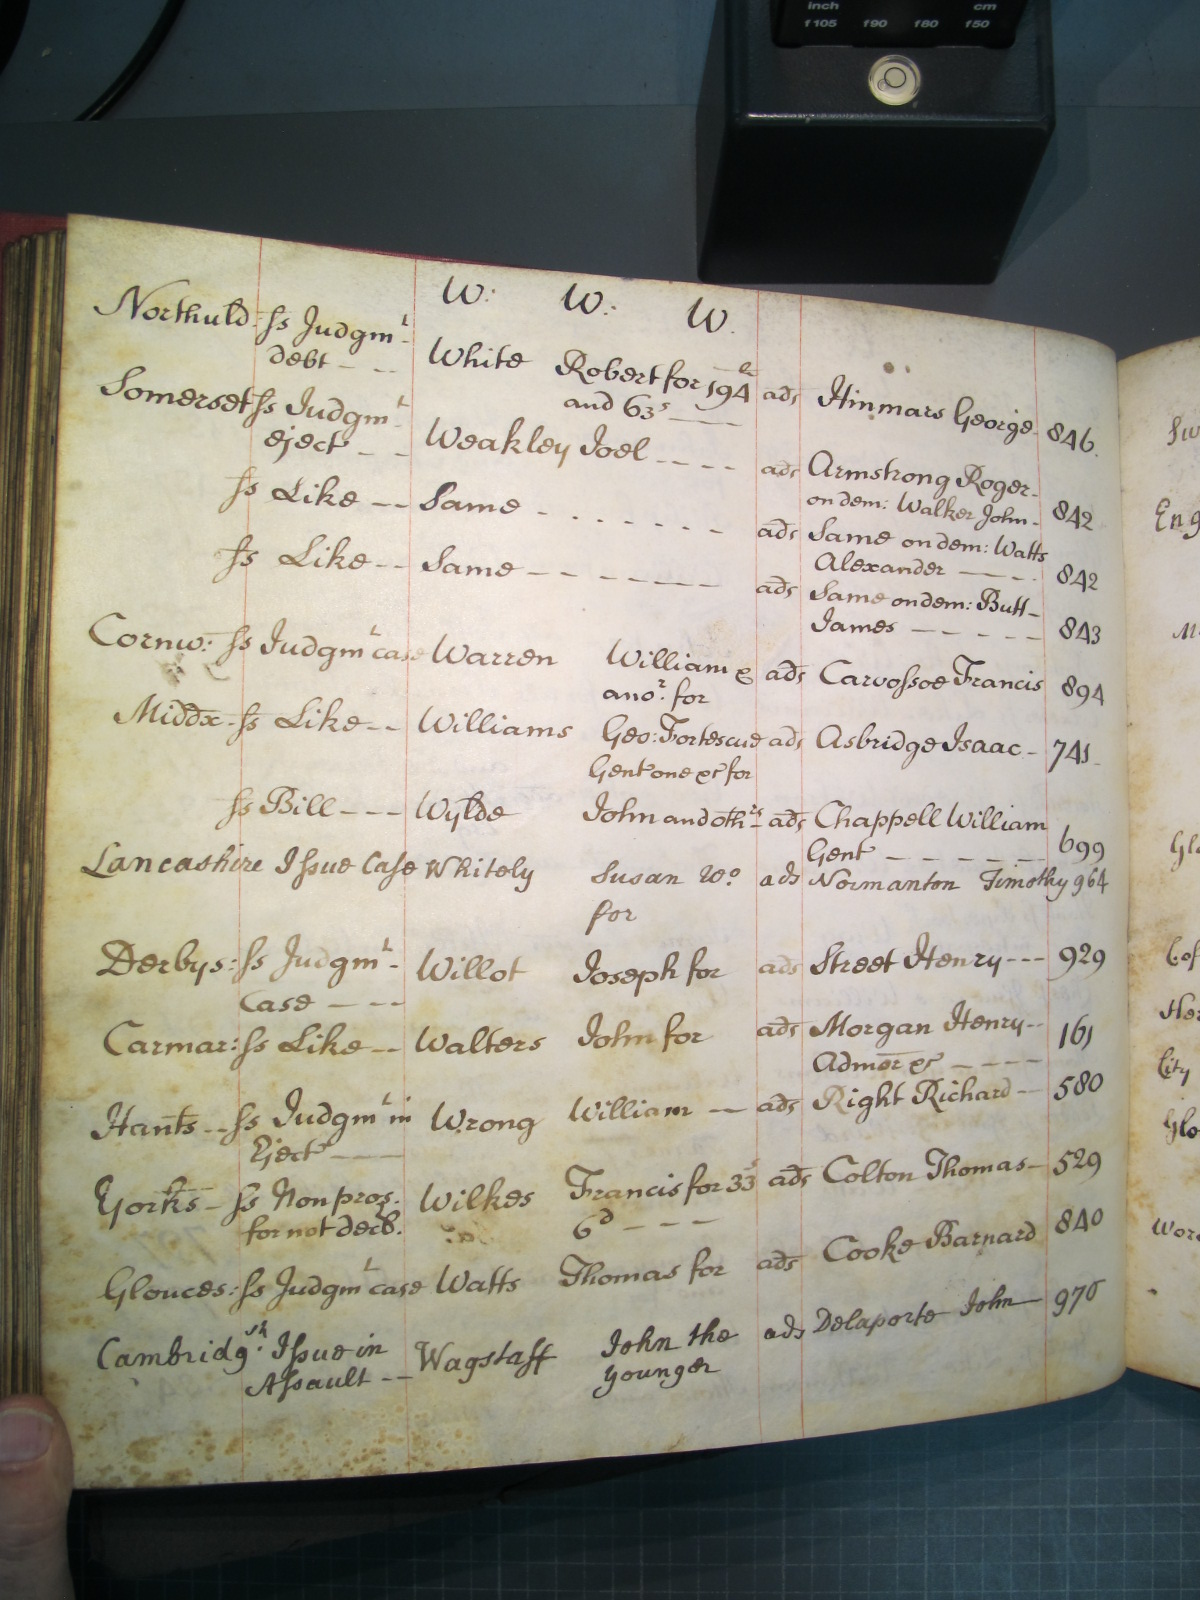 inch cm
f105 f90 f80 f50
W: W: W.
Northuld: ss Judgmt
debt - - - White Robert for 194li ads Hinmars George 846.
and 63s
Somerset ss Judgmt
eject - - Weakley Joel - - - - ads Armstrong Roger
on dem: Walker John - 842
ss Like - - Same - - - - - - - ads Same on dem: Watts
Alexander - - - 842
ss Like - - Same - - - - - - - ads Same on dem: Butt
James - - - - - 843
Cornw: ss Judgmt case Warren William & ads Carvossoe Francis 894
anor. for
Middx - ss Like - - Williams Geo: Fortescue ads Asbridge Isaac - 741
Gent one &c for
ss Bill - - - Wylde John and othrs ads Chappell William
Gent - - - - - 699
Lancashire Issue Case Whitely Susan Wo. ads Normanton Timothy 964
for
Derbys: ss Judgmt - Willot Joseph for ads Street Henry - - - 929
Case - - -
Carmar: ss Like - - Walters John for ads Morgan Henry - -
Admor &c - - - - 161
Hants - - ss Judgmt in Wrong William - - ads Right Richard - 580
Eject
Yorks - ss Non pros. Wilkes Francis for 33s ads Colton Thomas - 529
for not decl. 6d - - -
Glouces: ss Judgmt case Watts Thomas for ads Cooke Barnard 840
Cambridgsh: Issue in Wagstaff John the ads Delaporte John 976
Assault - - younger
Eng
City